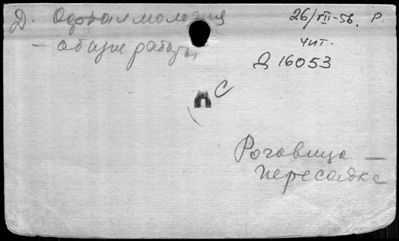 Д. Офталмология
26/VII-56. Р.
– общие работы
чит.
Д 16053
п с
Роговица –
пересадка